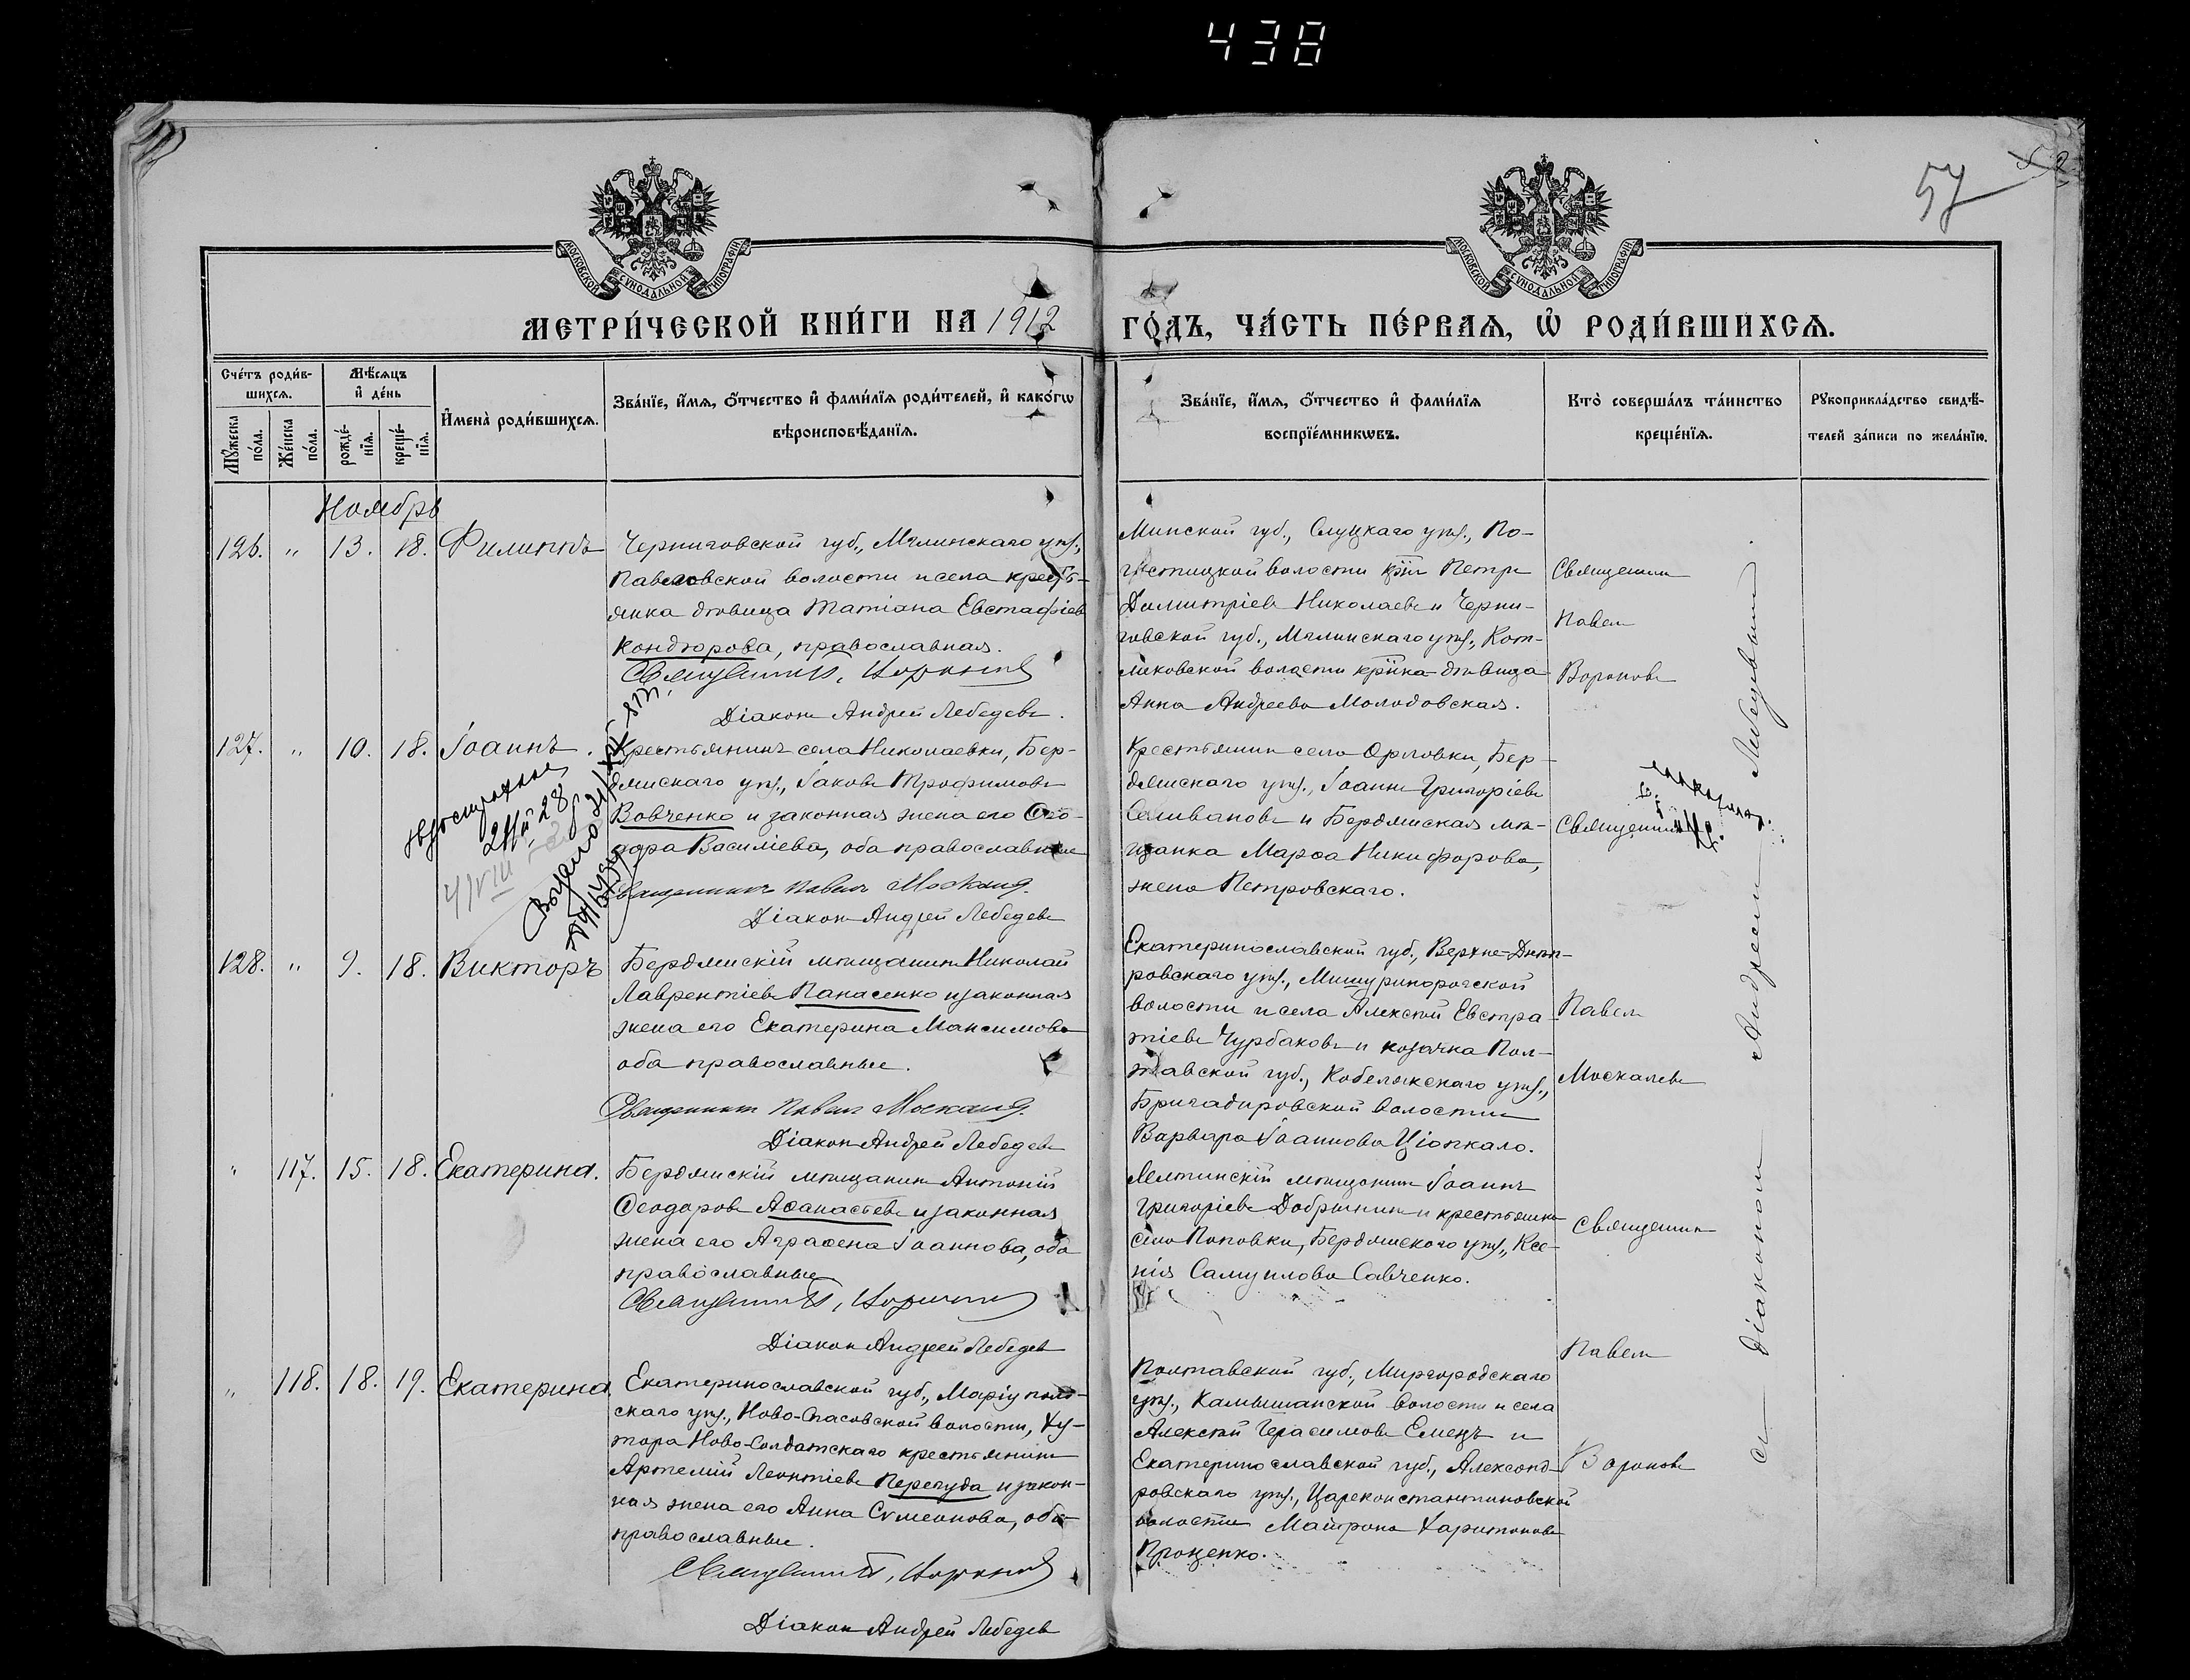 438
57
МОСКОВСКОЙ СУНОДАЛЬНОЙ ТИПОГРАФІИ
МОСКОВСКОЙ СУНОДАЛЬНОЙ ТИПОГРАФІИ
МЕТРИ́ЧЕСКОЙ КНИ́ГИ НА 1912
ГО́ДЪ, ЧА́СТЬ ПЕ́РВАѦ, Ѡ҆ РОДИ́ВШИХСѦ.
Сче́тъ роди́в-
шихсѧ.
Мꙋ́жеска по́ла.
Же́нска по́ла.
Мѣ́сѧцъ
и҆ де́нь
рожде́-
нїѧ.
креще́-
нїѧ.
И҆мена̀ роди́вшихсѧ.
Зва́нїе, и҆́мѧ, ѻ҆́тчество и҆ фами́лїѧ роди́телей, и҆ како́гѡ
вѣроисповѣ́данїѧ.
Зва́нїе, и҆́мѧ, ѻ҆́тчество и҆ фами́лїѧ
воспрїе́мникѡвъ.
Кто̀ соверша́лъ та́инство
креще́нїѧ.
Рꙋкоприкла́дство свидѣ́-
телей за́писи по жела́нїю.
Ноябрь
126. " 13. 18. Филиппъ
Черниговской губ., Мглинскаго уѣз.,
Павловской волости и села кресть-
янка дѣвица Татіана Евстафіева
Кондюрова, православная.
Діаконъ Андрей Лебедевъ.
Минской губ., Слуцкаго уѣз., По-
гостицкой волости кр̄нъ Петръ
Димитріевъ Николаевъ и Черни-
говской губ., Мглинскаго уѣз., Кот-
ляковской волости кр̄нка дѣвица
Анна Андреева Молодовская.
Священникъ
Павелъ
Вороновъ
127. " 10. 18. Іоаннъ.
Крестьянинъ села Николаевки, Бер-
дянскаго уѣз., Іаковъ Трофимовъ
Вовченко и законная жена его Ѳео-
дора Василіева, оба православные
Священникъ Павелъ Москалевъ.
Діаконъ Андрей Лебедевъ
Крестьянинъ села Орловки, Бер-
дянскаго уѣз., Іоаннъ Григоріевъ
Селивановъ и Бердянская мѣ-
щанка Марѳа Никифорова,
жена Петровскаго.
Священникъ
128. " 9. 18. Викторъ
Бердянскій мѣщанинъ Николай
Лаврентіевъ Панасенко и законная
жена его Екатерина Максимова
оба православные.
Священникъ Павелъ Москалевъ.
Діаконъ Андрей Лебедевъ
Екатеринославской губ., Верхне-Днѣп-
ровскаго уѣз., Мишуринорогской
волости и села Алексѣй Евстра-
тіевъ Чурбаковъ и козачка Пол-
тавской губ., Кобелякскаго уѣз.,
Бригадировской волости
Варвара Іоаннова Ціопкало.
Павелъ
Москалевъ
" 117. 15. 18. Екатерина.
Бердянскій мѣщанинъ Антоній
Ѳеодоровъ Аѳанасьевъ и законная
жена его Аграѳена Іоаннова, оба
православные
Діаконъ Андрей Лебедевъ
мѣщанинъ Іоаннъ
Григоріевъ Добрынинъ и крестьянка
села Поповки, Бердянскаго уѣз., Ксе-
нія Самуилова Савченко.
Священникъ
Павелъ
" 118. 18. 19. Екатерина
Екатеринославской губ., Маріуполь-
скаго уѣз., Ново-Спасовской волости, ху-
тора Ново-Солдатскаго крестьянинъ
Артемій Леонтіевъ Перегуда и закон-
ная жена его Анна Сѵмеонова, оба
православные.
Діаконъ Андрей Лебедевъ
Полтавской губ., Миргородскаго
уѣз., Камышанской волости и села
Алексѣй Герасимовъ Емецъ и
Екатеринославской губ., Александ-
ровскаго уѣз., Цареконстантиновской
волости Матрона Харитонова
Проценко.
Вороновъ
съ діакономъ Андреемъ Лебедевымъ.